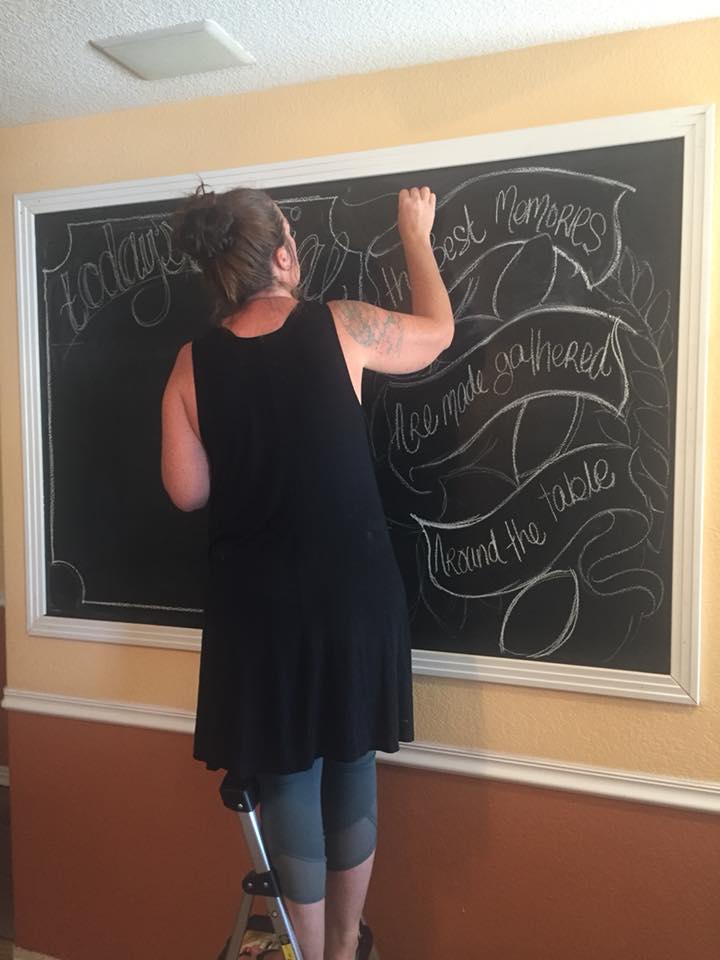 today's
the Best Memories
Are made gathered
Around the table